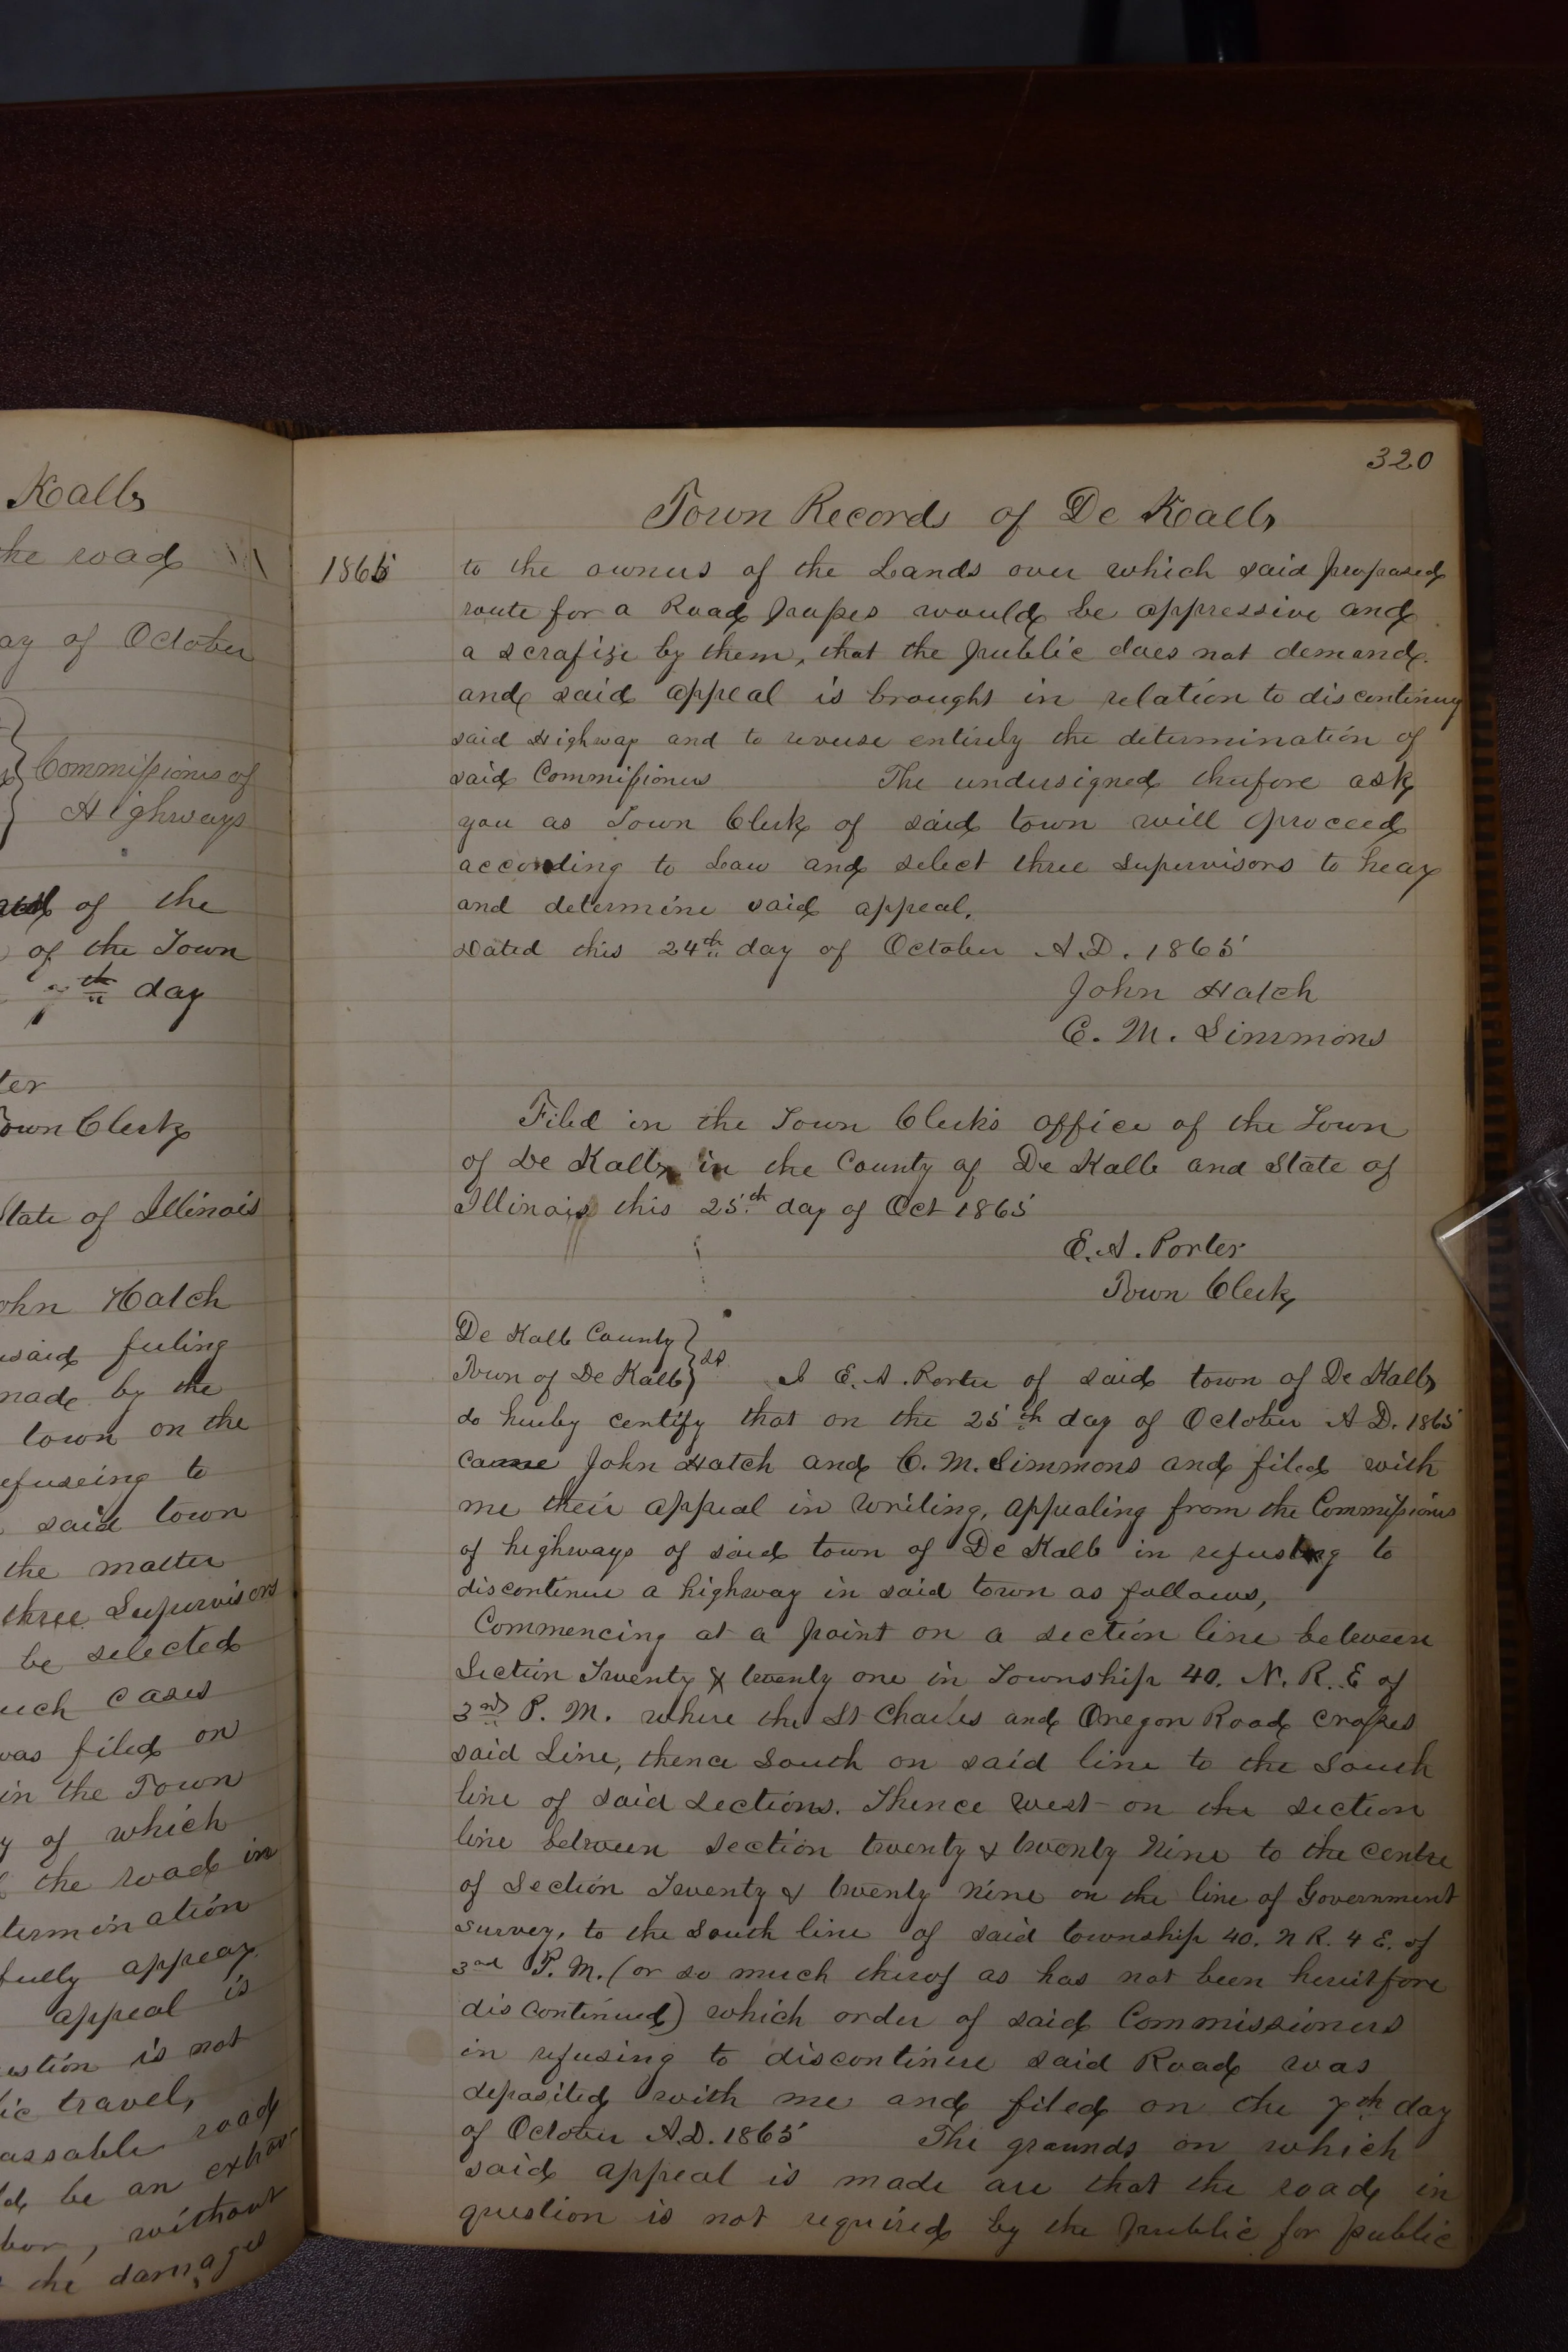 Kalb
the road
ay of October
Commissioners of
Highways
of the
of the Town
th day
ter
Town Clerk
State of Illinois
ohn Hatch
said feeling
made by the
town on the
efuseing to
said town
the matter
three Supervisors
be selected
uch cases
was filed on
in the Town
y of which
the road in
termination
fully appear
appeal is
estion is not
lic travel,
assable road
ld be an extra
bor, without
the damages
320
Town Records of De Kalb
1865
to the owners of the Lands over which said proposed
route for a Road passes would be oppressive and
a scrafize by them, that the public does not demand.
and said appeal is brought in relation to discontinuy
said Highway and to reverse entirely the determination of
said Commissioners The undersigned therfore ask
you as Town Clerk of said town will proceed
according to Law and select three Supervisors to hear
and determine said appeal.
Dated this 24th day of October A.D. 1865
John Hatch
C. M. Simmons
Filed in the Town Clerks office of the Town
of De Kalb in the County of De Kalb and State of
Illinois this 25th day of Oct 1865
E. A. Porter
Town Clerk
De Kalb County
Town of De Kalb } ss I E. A. Porter of said town of De Kalb
do hereby certify that on the 25th day of October A D. 1865
came John Hatch and C. M. Simmons and filed with
me their appeal in writing, appealing from the Commissioners
of highways of said town of De Kalb in refusing to
discontinue a highway in said town as follows,
Commencing at a point on a section line between
Section Twenty & twenty one in Township 40. N. R. E of
3rd P. M. where the St Charles and Oregon Road crosses
said Line, thence South on said line to the South
line of said sections. Thence west on the section
line between section twenty & twenty Nine to the centre
of Section Twenty & twenty nine on the line of Government
survey, to the South line of said township 40. N R. 4 E. of
3rd P. M. (or so much therof as has not been heretofore
discontinued) which order of said Commissioners
in refusing to discontinue said Road was
deposited with me and filed on the 7th day
of October A.D. 1865 The grounds on which
said appeal is made are that the road in
question is not required by the public for public